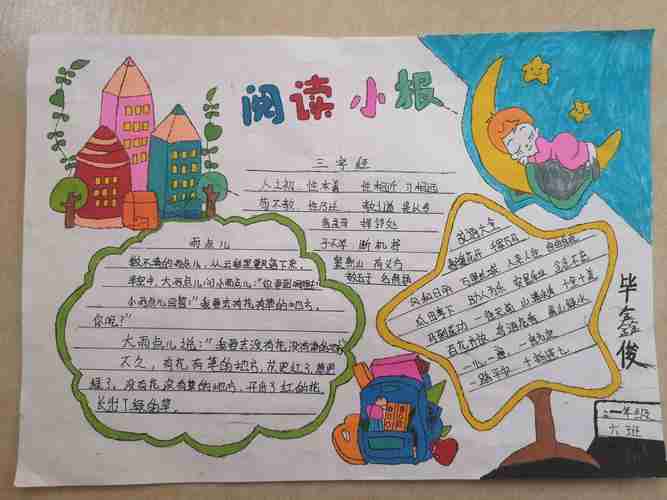 阅读小报
三字经
人之初 性本善 性相近 习相远
苟不教 性乃迁 教之道 贵以专
昔孟母 择邻处
子不学 断机杼
窦燕山 有义方
教五子 名俱扬
雨点儿
数不清的雨点儿，从云彩里飘落下来。
半空中，大雨点儿问小雨点儿：“你要到哪里去？”
小雨点儿回答：“我要去有花有草的地方。
你呢？”
大雨点儿说：“我要去没有花没有草的地方。”
不久，有花有草的地方，花更红了，草更
绿了。没有花没有草的地方，开出了红的花，
长出了绿的草。
成语大全
春暖花开
风和日丽 万里无云 人来人往
助人为乐
马到成功
百花齐放
一心一意
毕鑫俊
一年级
六班